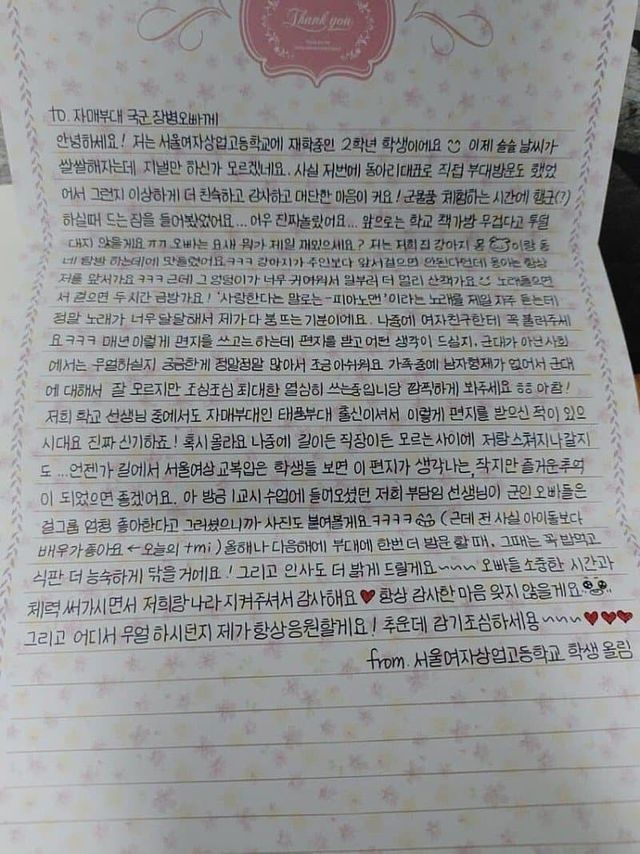 Thank you
to. 자매부대 국군장병오빠께
안녕하세요! 저는 서울여자상업고등학교에 재학중인 2학년 학생이에요 이제 슬슬 날씨가
쌀쌀해지는데 지낼만 하신가 모르겠네요. 사실 저번에 동아리대표로 직접 부대방문도 했었
어서 그런지 이상하게 더 친숙하고 감사하고 대단한 마음이 커요! 군용품 체험하는 시간에 행군(?)
하실때 드는 짐을 들어봤었어요... 어우 진짜놀랐어요... 앞으로는 학교 책가방 무겁다고 투덜
대지 않을게요ㅠㅠ 오빠는 요새 뭐가 제일 재밌으세요? 저는 저희집 강아지 몽이랑 동
네 탐방 하는데에 맛들렸어요ㅋㅋㅋ 강아지가 주인보다 앞서걸으면 안된다던데 몽이는 항상
저를 앞서가요ㅋㅋㅋ 근데 그 엉덩이가 너무 귀여워서 일부러 더 멀리 산책가요 노래들으면
서 걸으면 두시간 금방가요! '사랑한다는 말로는-피아노맨'이라는 노래를 제일 자주 듣는데
정말 노래가 너무달달해서 제가 다 붕 뜨는 기분이에요. 나중에 여자친구한테 꼭 불러주세
요ㅋㅋㅋ 매년 이렇게 편지를 쓰고는하는데 편지를 받고 어떤 생각이 드실지, 군대가 아닌 사회
에서는 무얼하실지 궁금한게 정말정말 많아서 조금 아쉬워요. 가족중에 남자형제가 없어서 군대
에 대해서 잘 모르지만 조심조심 최대한 열심히 쓰는중입니당 깜찍하게 봐주세요 ㅎㅎ 아참!
저희 학교 선생님 중에서도 자매부대인 태풍부대 출신이셔서 이렇게 편지를 받으신 적이 있으
시대요 진짜 신기하죠! 혹시 몰라요 나중에 길이든 직장이든 모르는사이에 저랑 스쳐지나갈지
도 ...언젠가 길에서 서울여상 교복입은 학생들 보면 이 편지가 생각나는, 작지만 즐거운추억
이 되었으면 좋겠어요. 아 방금 1교시 수업에 들어오셨던 저희 부담임 선생님이 군인 오빠들은
걸그룹 엄청 좋아한다고 그러셨으니까 사진도 붙여볼게요ㅋㅋㅋㅋ (근데 전 사실 아이돌보다
배우가좋아요 ← 오늘의 tmi) 올해나 다음해에 부대에 한번 더 방문 할 때, 그때는 꼭 밥먹고
식판 더 능숙하게 닦을거에요! 그리고 인사도 더 밝게 드릴게요~~~ 오빠들 소중한 시간과
체력 써가시면서 저희랑 나라 지켜주셔서 감사해요♥ 항상 감사한 마음 잊지 않을게요
그리고 어디서 무얼 하시던지 제가 항상응원할게요! 추운데 감기조심하세용~~~♥♥♥
from. 서울여자상업고등학교 학생 올림